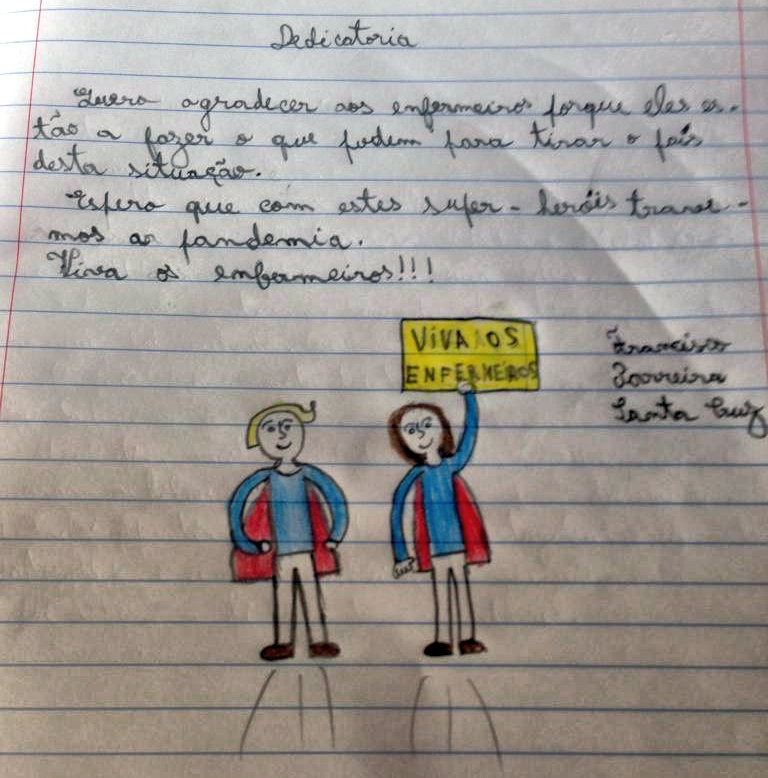 Dedicatoria
Quero agradecer aos enfermeiros porque eles es-
tão a fazer o que podem para tirar o país
desta situação.
Espero que com estes super-heróis trave-
mos a pandemia.
Viva os enfermeiros!!!
VIVA OS
ENFERMEIROS
Francisco
Parreira
Santa Cruz